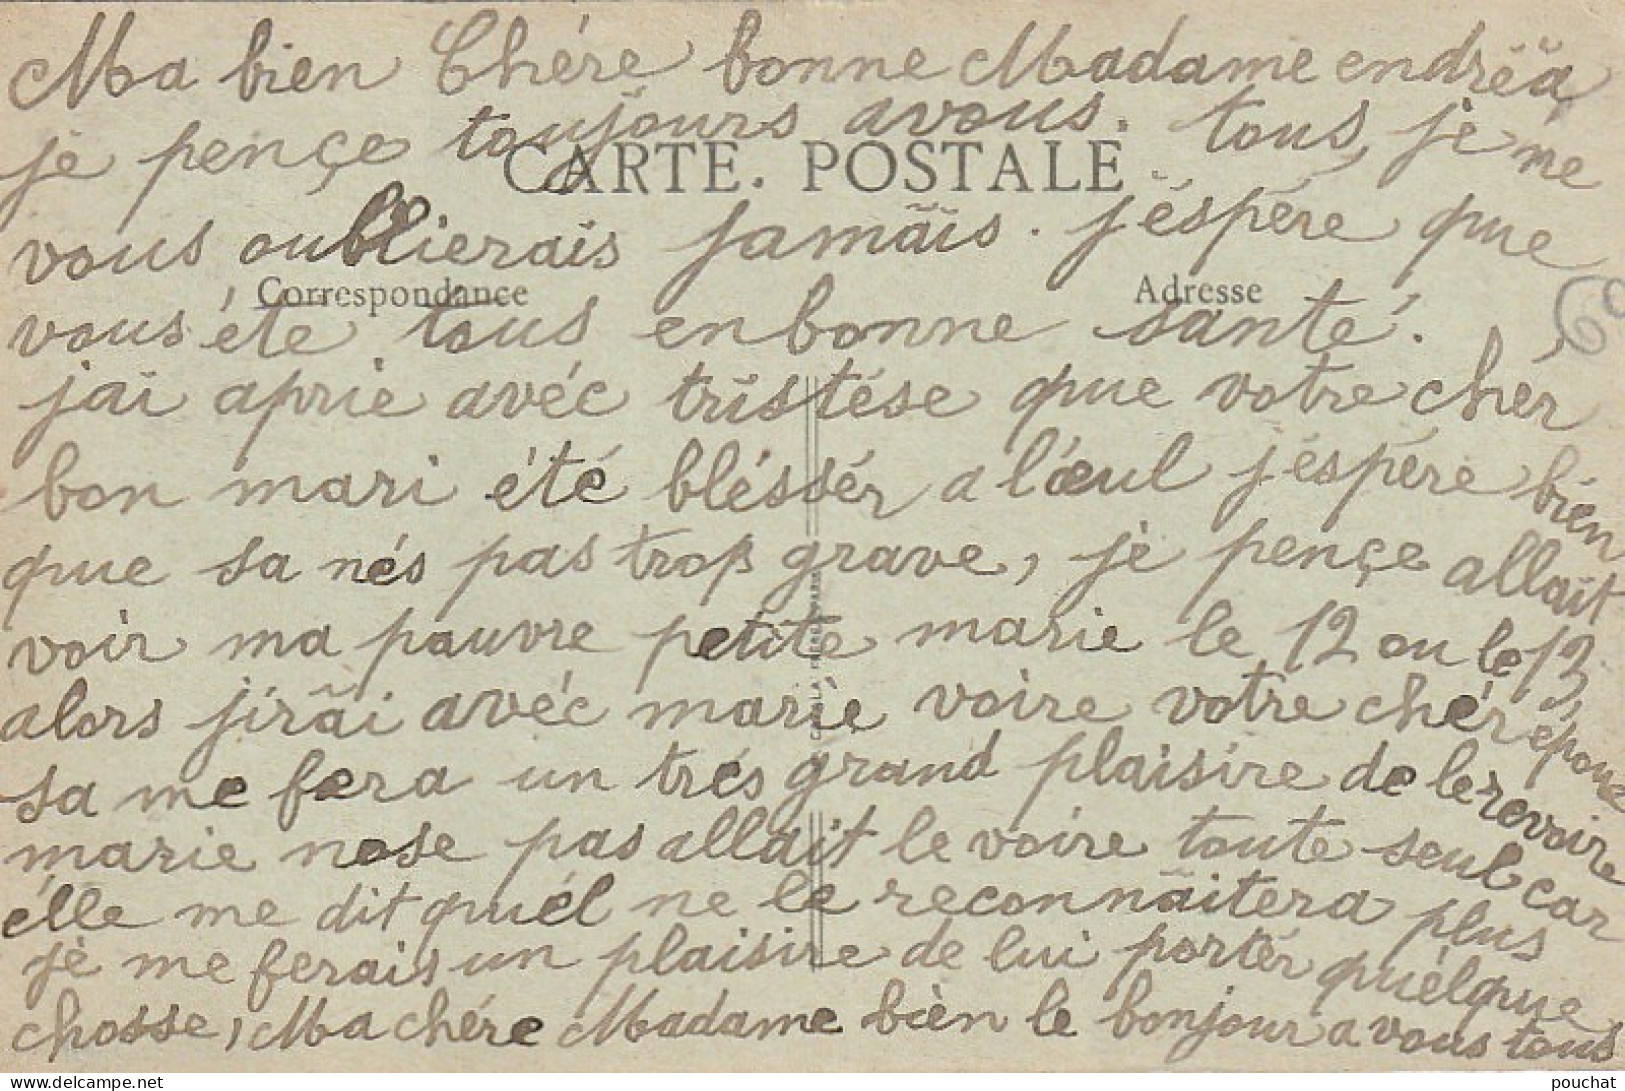 Ma bien Chére bonne Madame endrëä
je pençe toujours avous. tous, je ne
CARTE POSTALE
vous oublierais jamäis. j'éspére que
Correspondance
Adresse
vous éte tous en bonne santé.
jai aprie avéc tristése que votre chér
bon mari été bléssér a lœul j'éspére bien
que sa nés pas trop grave, je pençe allait
voir ma pauvre petite marie le 12 ou le 13,
alors jiräi avéc marie voire votre chér épouse
sa me fera un trés grand plaisire de le revoire
marie nose pas allait le voire toute seul car
élle me dit quél ne le reconnäitera plus
je me ferais un plaisire de lui portér quélque
chosse, Ma chére Madame bien le bonjour a vous tous
© Delcampe.net
pouchat